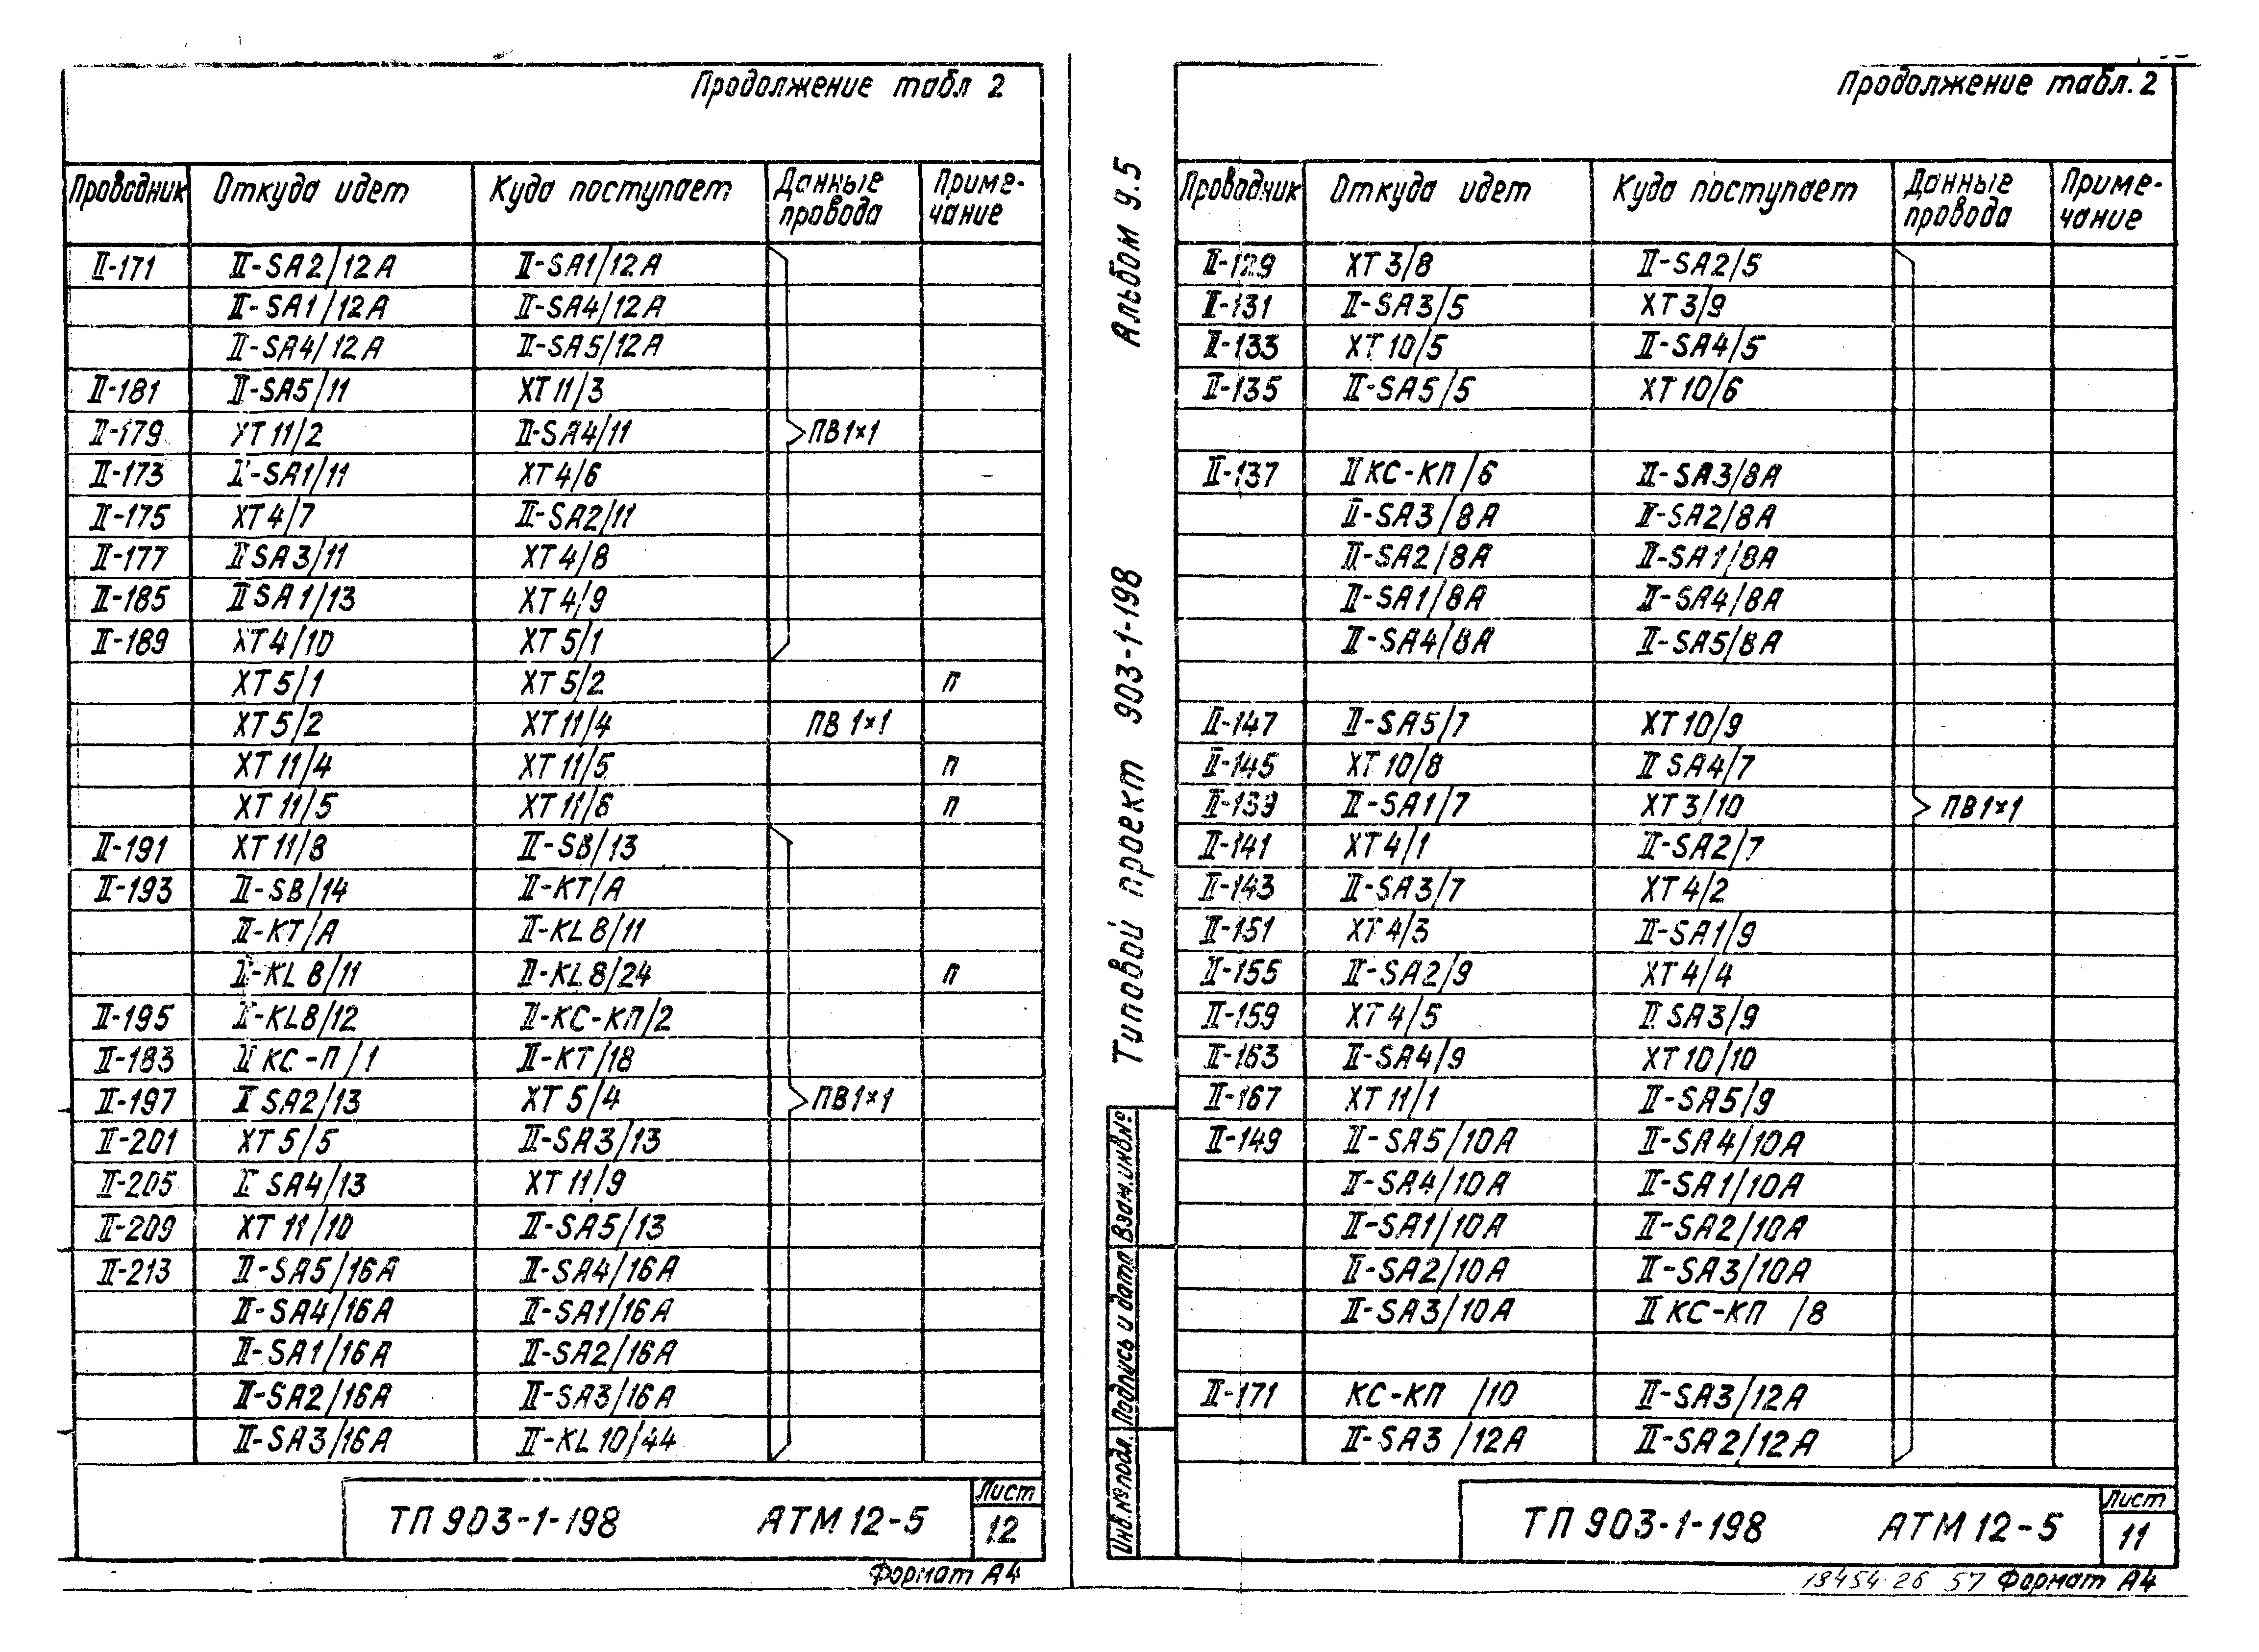 Продолжение табл 2
Проводник Откуда идет Куда поступает Данные провода Приме-чание
II-171 II-SA2/12A II-SA1/12A
II-SA1/12A II-SA4/12A
II-SA4/12A II-SA5/12A
II-181 II-SA5/11 XT11/3
II-179 XT11/2 II-SA4/11 ПВ1×1
II-173 II-SA1/11 XT4/6
II-175 XT4/7 II-SA2/11
II-177 II SA3/11 XT4/8
II-185 II SA1/13 XT4/9
II-189 XT4/10 XT5/1
XT5/1 XT5/2 п
XT5/2 XT11/4 ПВ 1×1
XT11/4 XT11/5 п
XT11/5 XT11/6 п
II-191 XT11/8 II-SB/13
II-193 II-SB/14 II-KT/A
II-KT/A II-KL8/11
II-KL8/11 II-KL8/24 п
II-195 II-KL8/12 II-KC-КП/2
II-183 II KC-П/1 II-KT/18
II-197 II SA2/13 XT5/4 ПВ1×1
II-201 XT5/5 II-SA3/13
II-205 II SA4/13 XT11/9
II-209 XT11/10 II-SA5/13
II-213 II-SA5/16A II-SA4/16A
II-SA4/16A II-SA1/16A
II-SA1/16A II-SA2/16A
II-SA2/16A II-SA3/16A
II-SA3/16A II-KL10/44
ТП 903-1-198 АТМ 12-5 Лист 12
Формат А4
Альбом 9.5
Типовой проект 903-1-198
Взам.инв.№
Подпись и дата
Инв.№подл.
Продолжение табл. 2
Проводник Откуда идет Куда поступает Данные провода Приме-чание
II-129 XT3/8 II-SA2/5
II-131 II-SA3/5 XT3/9
II-133 XT10/5 II-SA4/5
II-135 II-SA5/5 XT10/6
II-137 II KC-КП/6 II-SA3/8A
II-SA3/8A II-SA2/8A
II-SA2/8A II-SA1/8A
II-SA1/8A II-SA4/8A
II-SA4/8A II-SA5/8A
II-147 II-SA5/7 XT10/9
II-145 XT10/8 II SA4/7
II-139 II-SA1/7 XT3/10 ПВ1×1
II-141 XT4/1 II-SA2/7
II-143 II-SA3/7 XT4/2
II-151 XT4/3 II-SA1/9
II-155 II-SA2/9 XT4/4
II-159 XT4/5 II SA3/9
II-163 II-SA4/9 XT10/10
II-167 XT11/1 II-SA5/9
II-149 II-SA5/10A II-SA4/10A
II-SA4/10A II-SA1/10A
II-SA1/10A II-SA2/10A
II-SA2/10A II-SA3/10A
II-SA3/10A II KC-КП /8
II-171 KC-КП /10 II-SA3/12A
II-SA3/12A II-SA2/12A
ТП 903-1-198 АТМ 12-5 Лист 11
18454-26 57 Формат А4